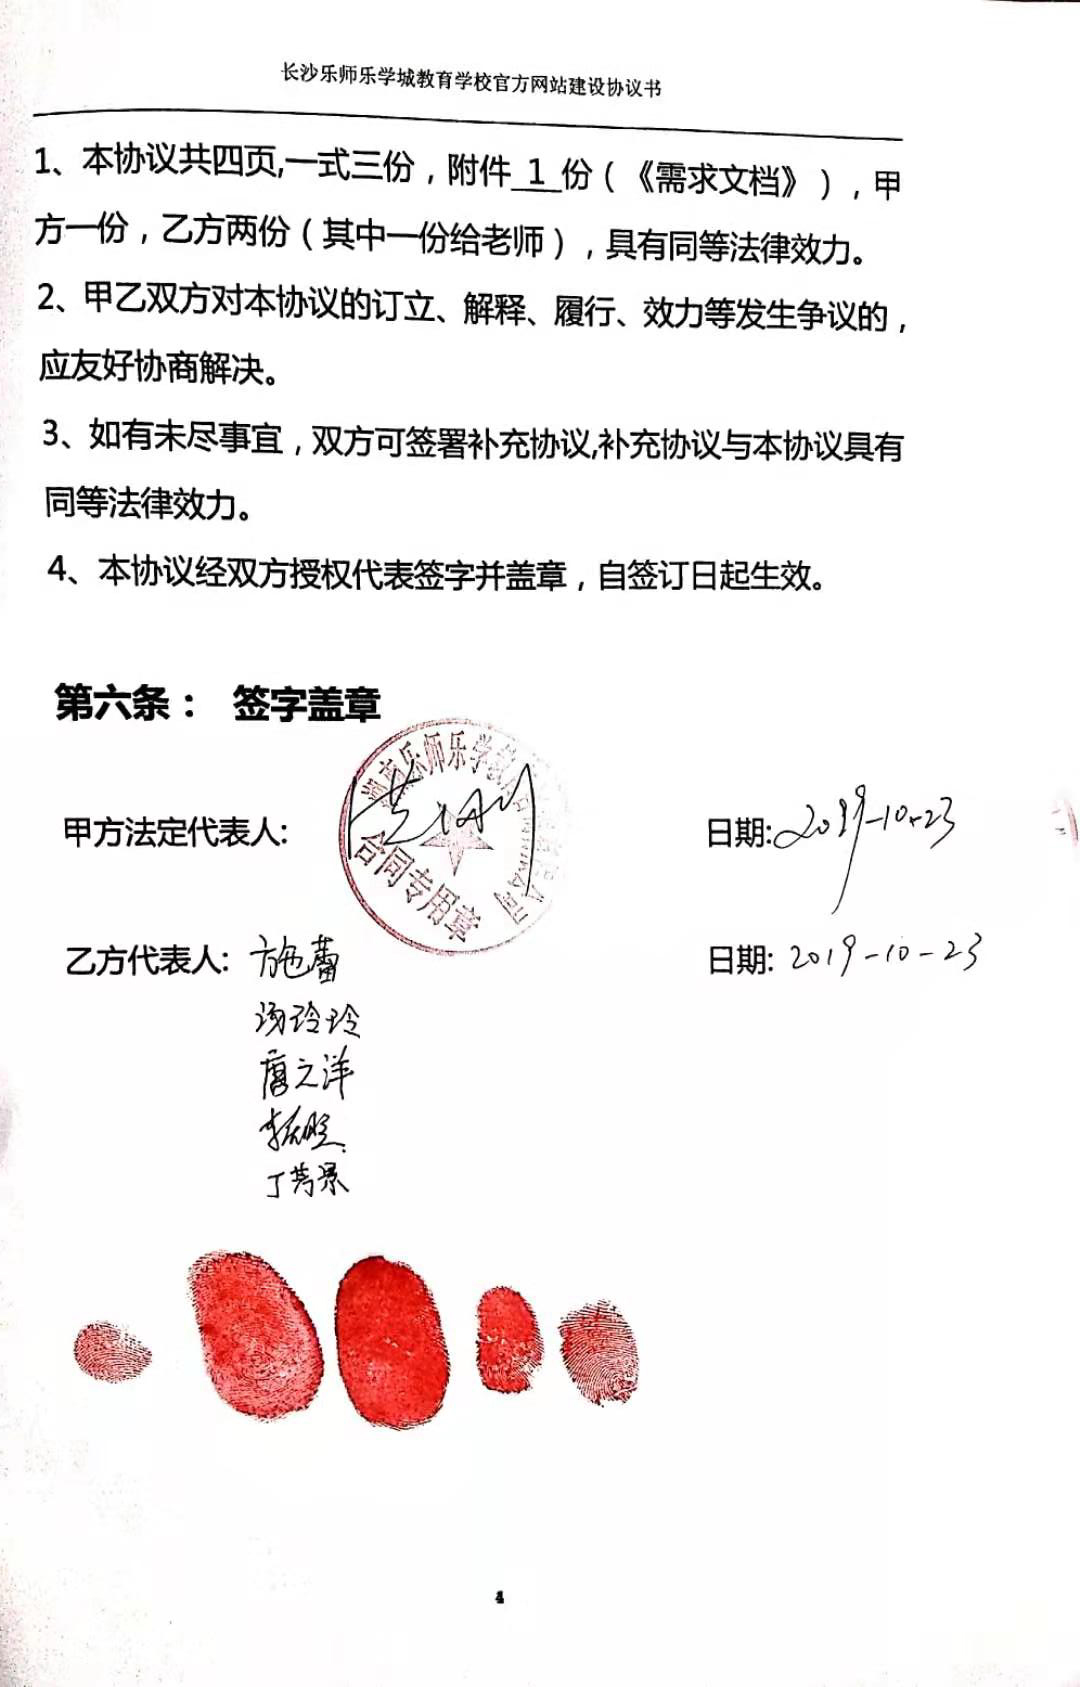 长沙乐师乐学城教育学校官方网站建设协议书
1、本协议共四页,一式三份，附件 1 份（《需求文档》），甲
方一份，乙方两份（其中一份给老师），具有同等法律效力。
2、甲乙双方对本协议的订立、解释、履行、效力等发生争议的，
应友好协商解决。
3、如有未尽事宜，双方可签署补充协议,补充协议与本协议具有
同等法律效力。
4、本协议经双方授权代表签字并盖章，自签订日起生效。
第六条： 签字盖章
乐师乐学
合同专用章
甲方法定代表人: 日期:2019-10-23
乙方代表人: 施蕾 日期: 2019-10-23
汤玲玲
唐之洋
丁芳景
4